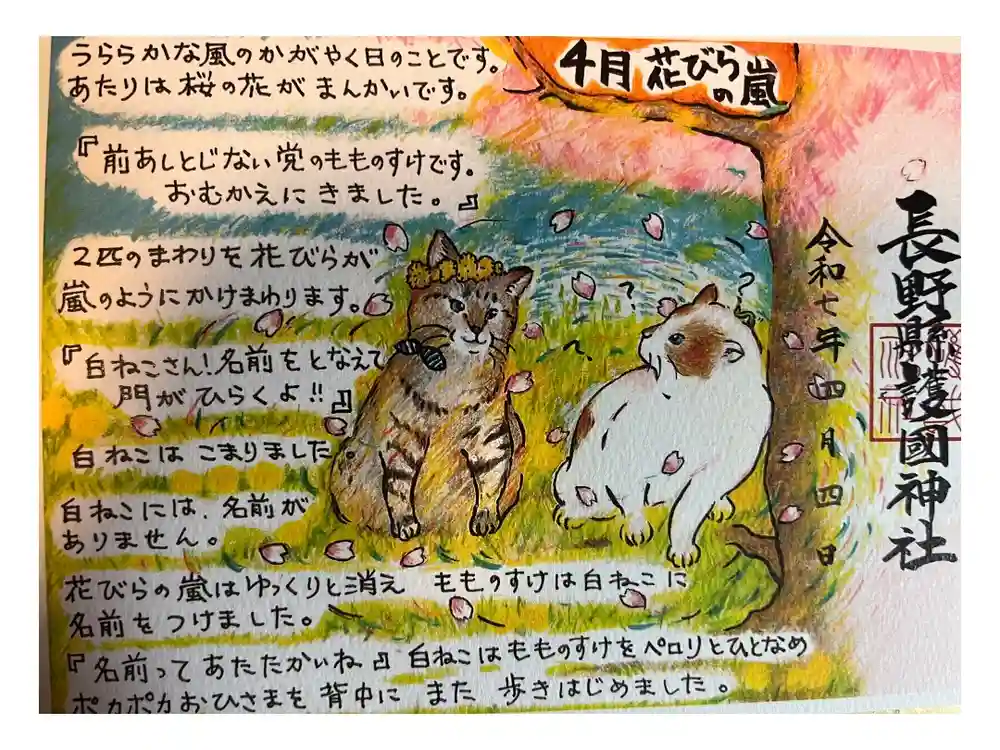 4月 花びら
の嵐
うららかな風のかがやく日のことです。
あたりは桜の花がまんかいです。
『前あしとじない党のもものすけです。
おむかえにきました。』
2匹のまわりを花びらが
嵐のようにかけまわります。
『白ねこさん!名前をとなえて
門がひらくよ!!』
白ねこはこまりました。
白ねこには、名前が
ありません。
花びらの嵐はゆっくりと消え もものすけは白ねこに
名前をつけました。
『名前ってあたたかいね』白ねこはもものすけをペロリとひとなめ
ポカポカおひさまを背中に また 歩きはじめました。
?
?
?
令和七年四月四日
長野縣護國神社